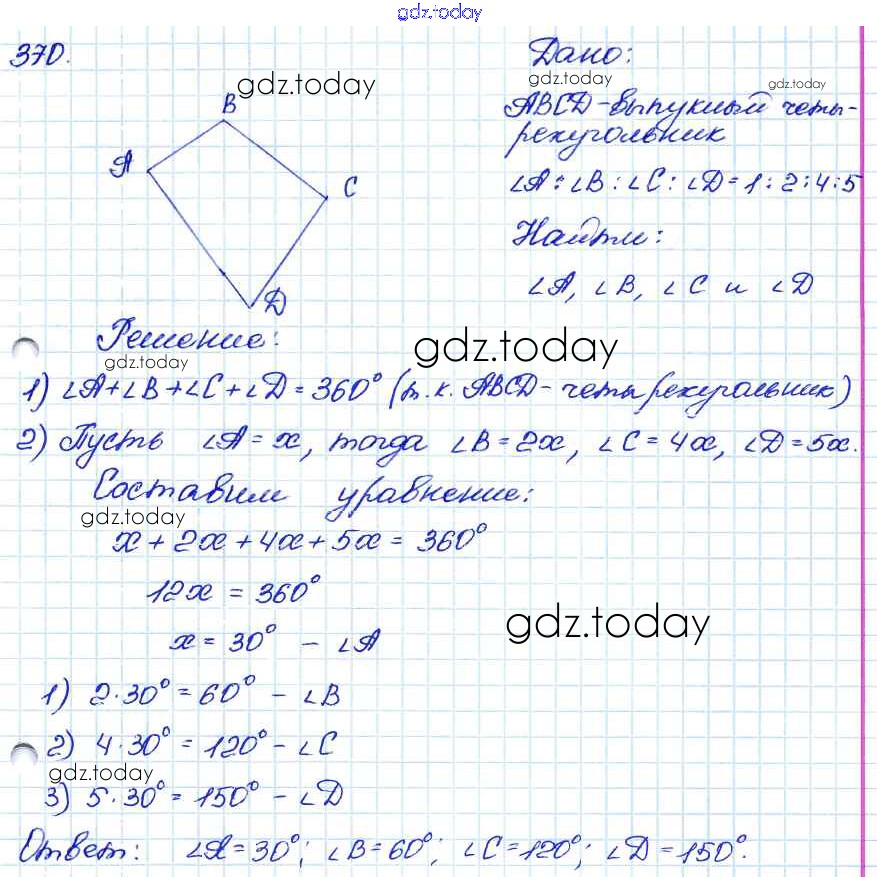 gdz.today
370.
Дано:
gdz.today
gdz.today
gdz.today
B
ABCD - выпуклый четы-
рехугольник
A
C
∠A : ∠B : ∠C : ∠D = 1 : 2 : 4 : 5
Найти:
∠A, ∠B, ∠C и ∠D
D
Решение:
gdz.today
gdz.today
1) ∠A + ∠B + ∠C + ∠D = 360° (т.к. ABCD - четырехугольник)
2) Пусть ∠A = x, тогда ∠B = 2x, ∠C = 4x, ∠D = 5x.
Составим уравнение:
gdz.today
x + 2x + 4x + 5x = 360°
12x = 360°
gdz.today
x = 30° - ∠A
1) 2 · 30° = 60° - ∠B
2) 4 · 30° = 120° - ∠C
gdz.today
3) 5 · 30° = 150° - ∠D
Ответ: ∠A = 30°; ∠B = 60°; ∠C = 120°; ∠D = 150°.